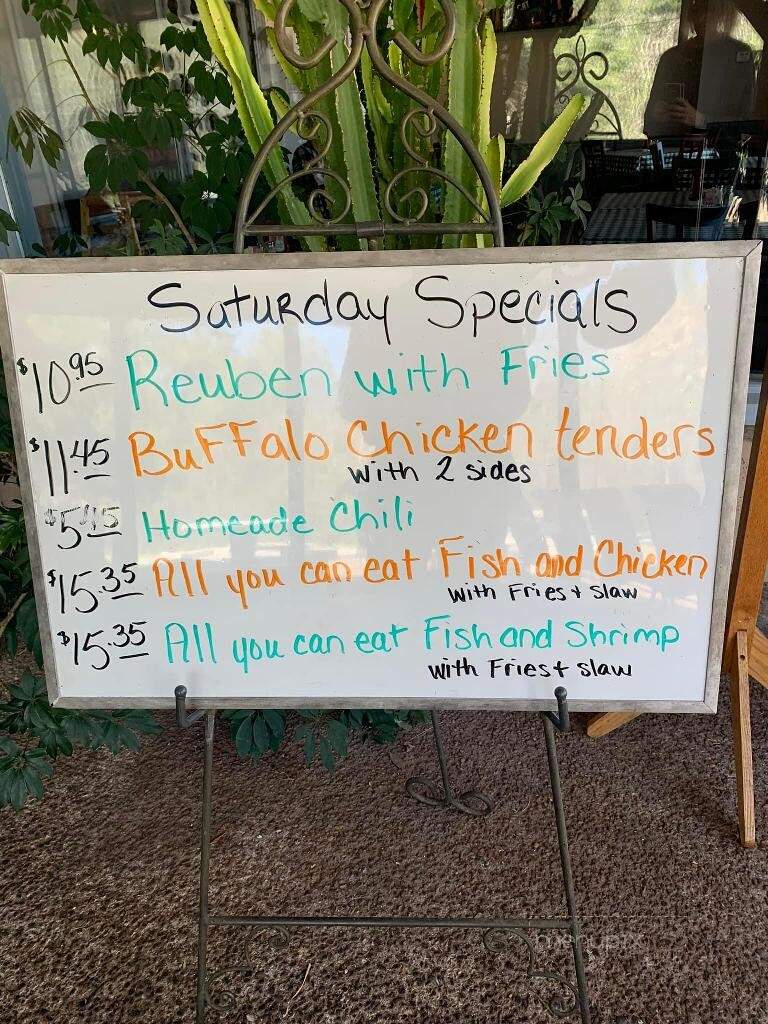 Saturday Specials
$10.95 Reuben with Fries
$11.45 Buffalo Chicken tenders
with 2 sides
$5.45 Homeade Chili
$15.35 All you can eat Fish and Chicken
with Fries + slaw
$15.35 All you can eat Fish and Shrimp
with Fries + slaw
menupix